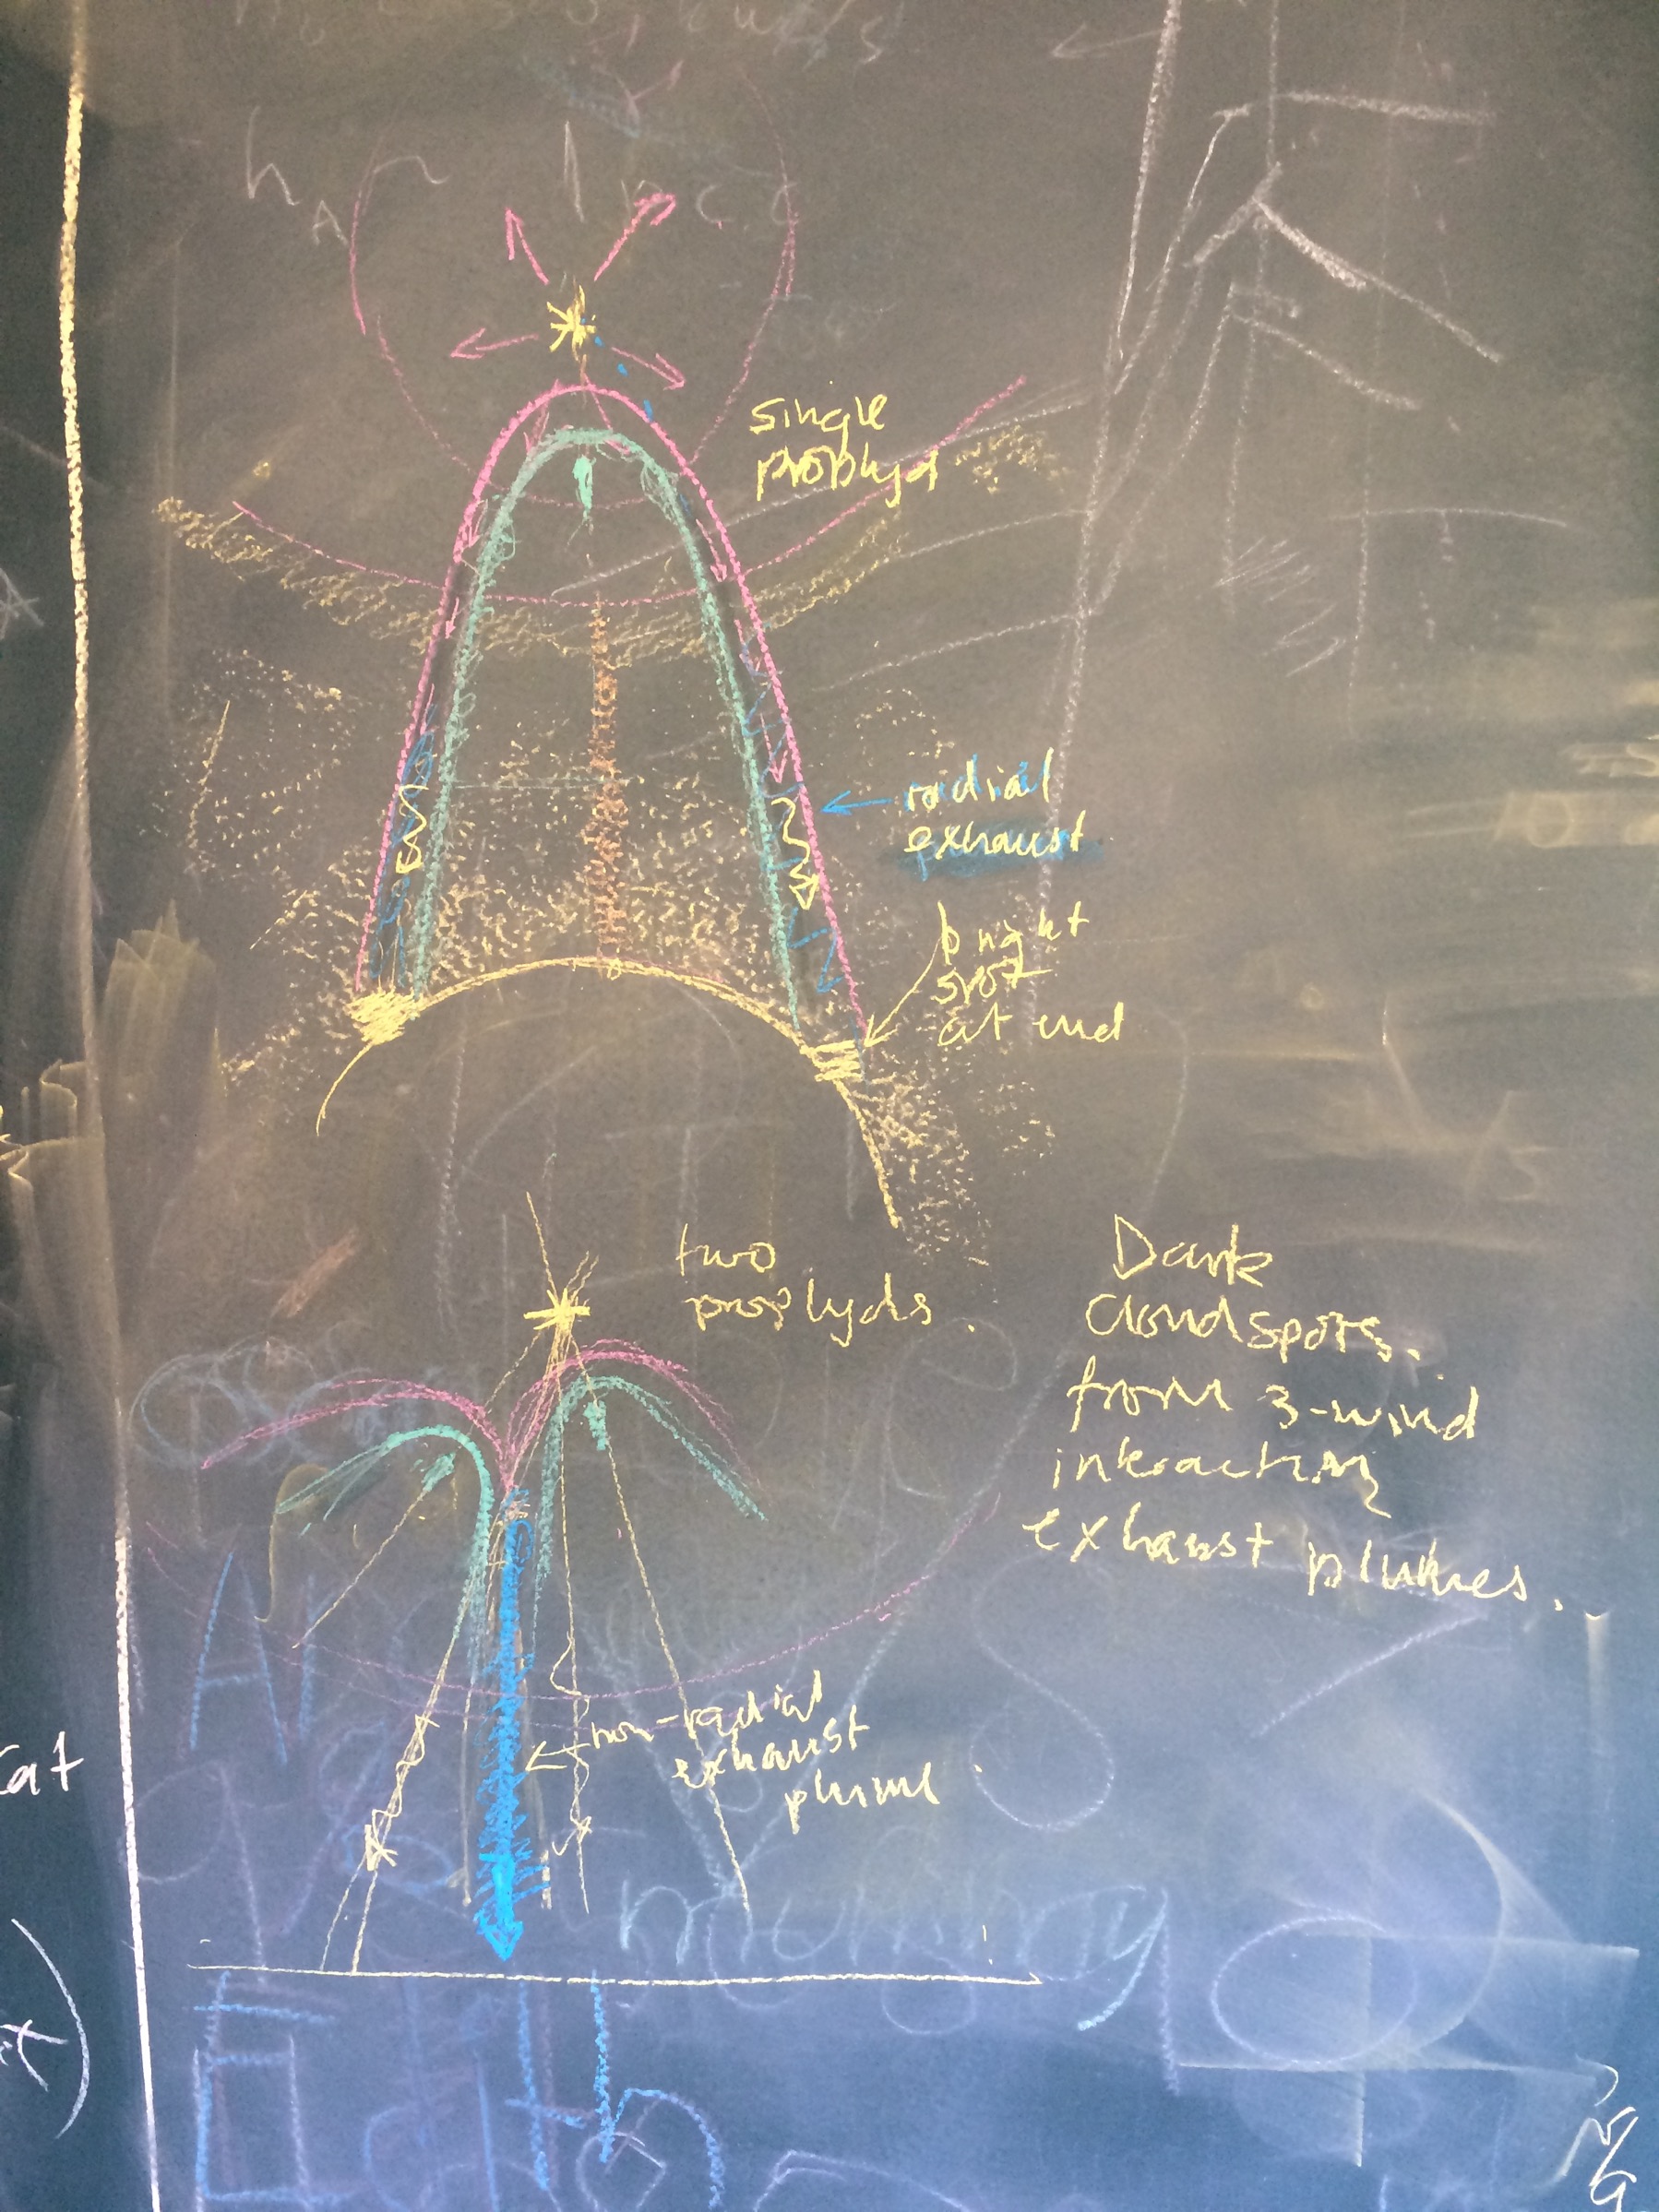 single
proplyd
radial
exhaust
bright
spot
at end
two
proplyds.
Dark
Cloudspots.
from 3-wind
interaction
exhaust plumes.
non-radial
exhaust
plume.